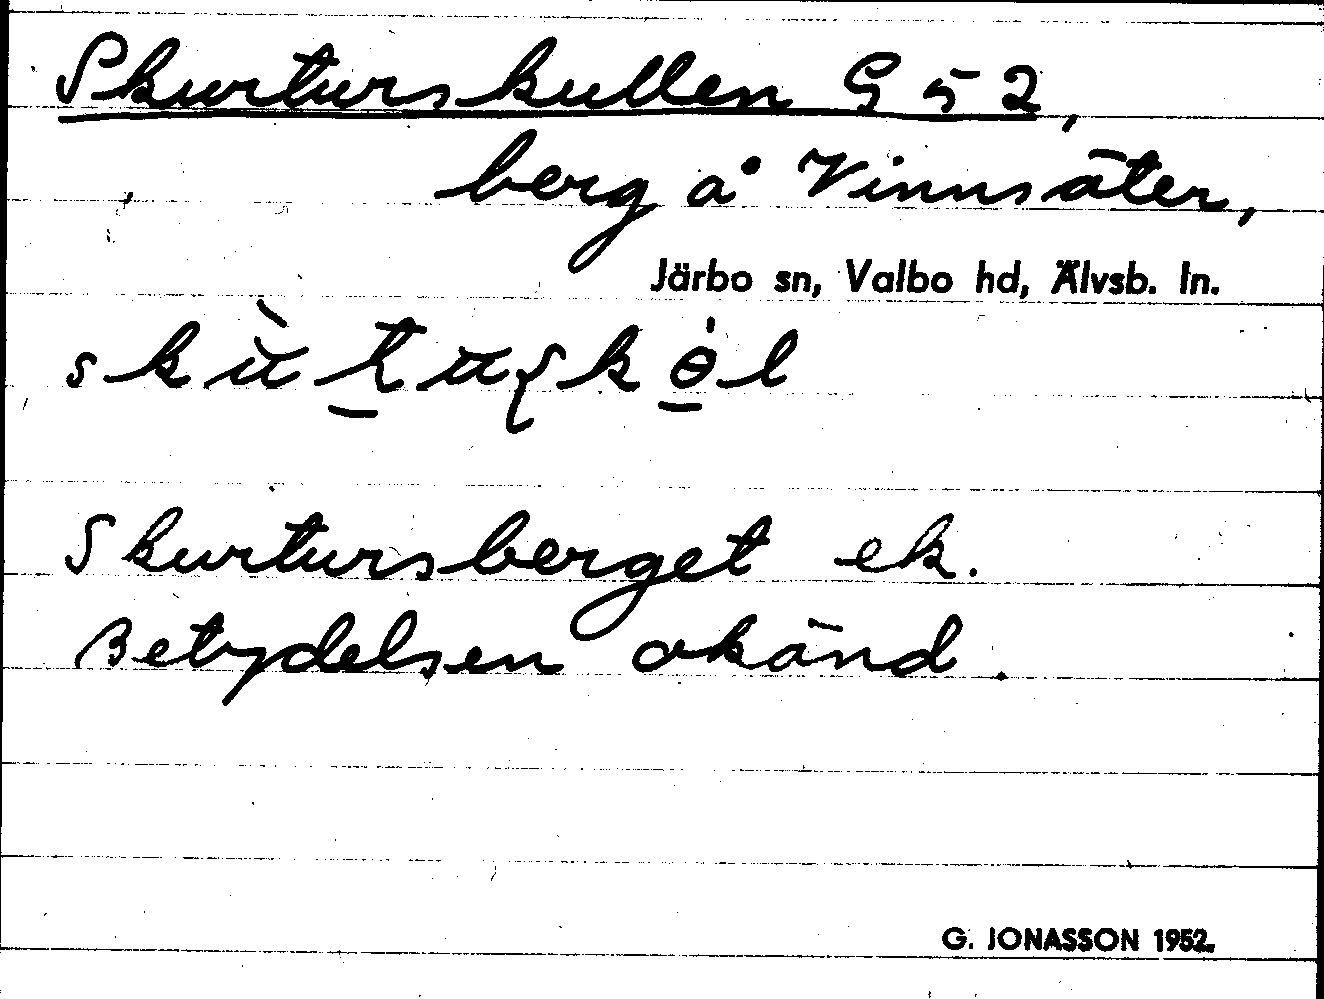 Skurturskullen G 52,
berg å Vinnsäter,
Järbo sn, Valbo hd, Älvsb. ln.
Skurtursberget ek.
Betydelsen okänd.
G. JONASSON 1952.